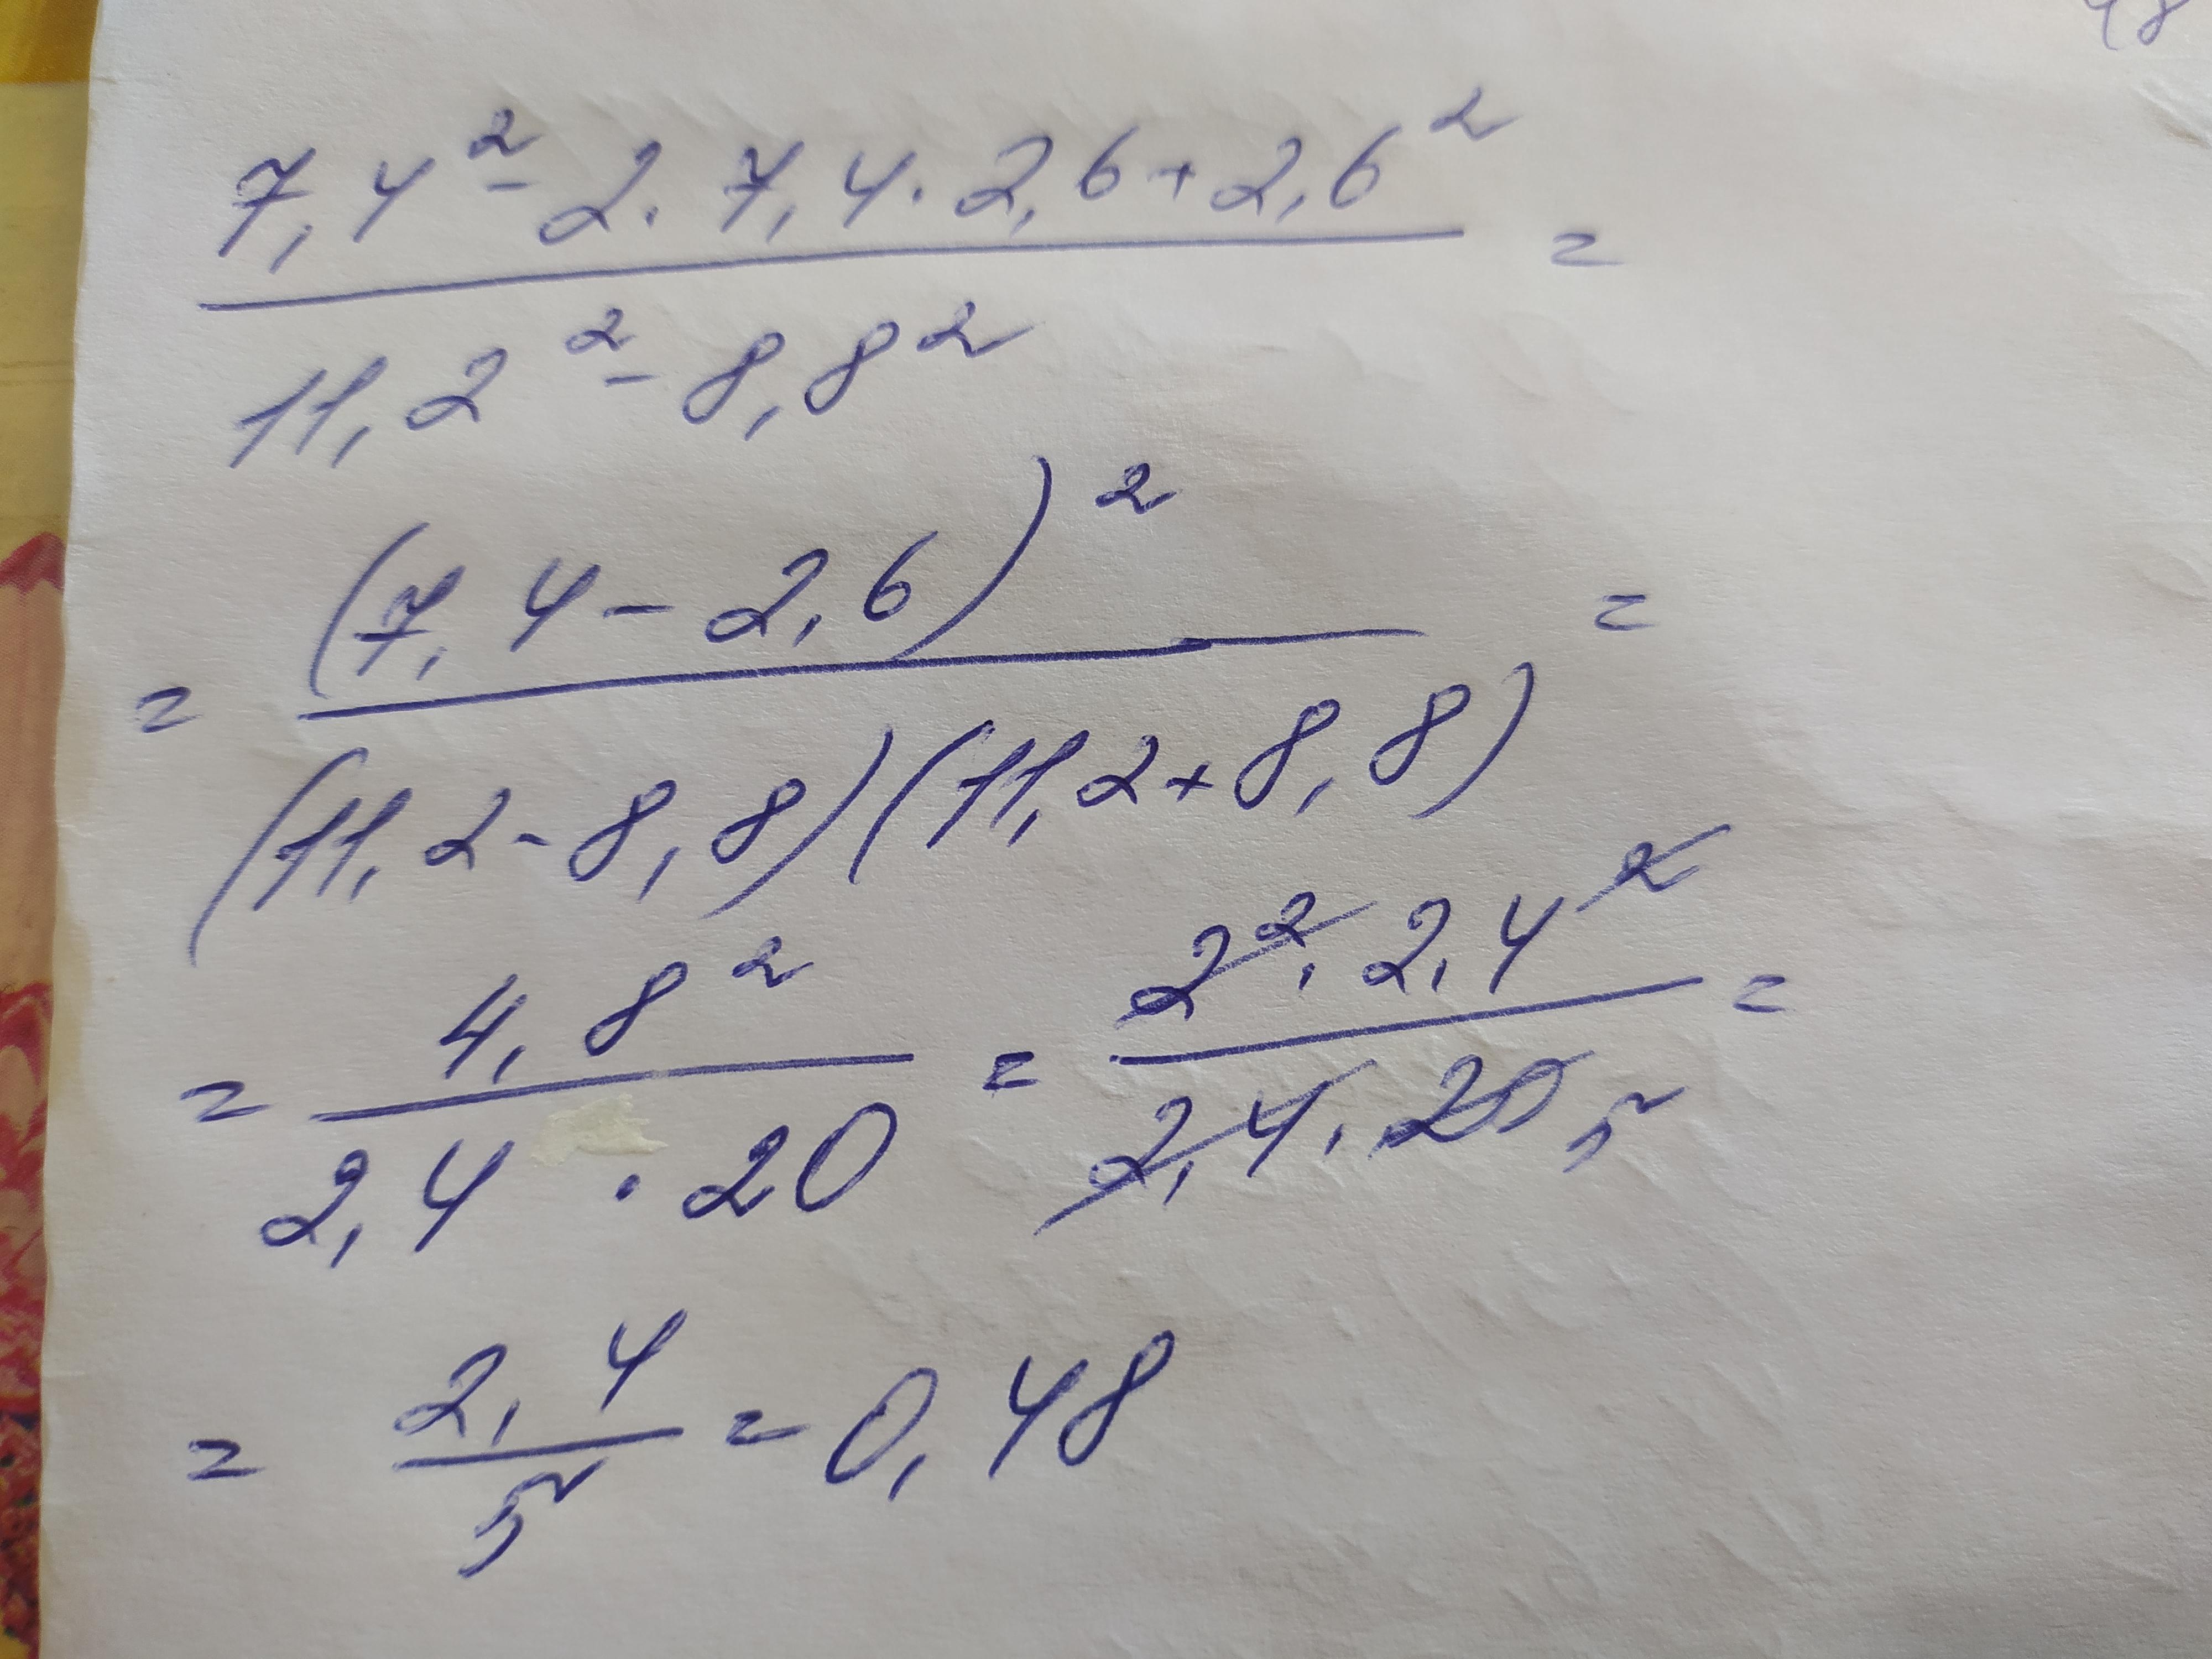 48
7,4² - 2 · 7,4 · 2,6 + 2,6² =
11,2² - 8,8²
= (7,4 - 2,6)² =
(11,2 - 8,8)(11,2 + 8,8)
= 4,8² = 2² · 2,4² =
2,4 · 20 2,4 · 20 5
= 2,4 = 0,48
5